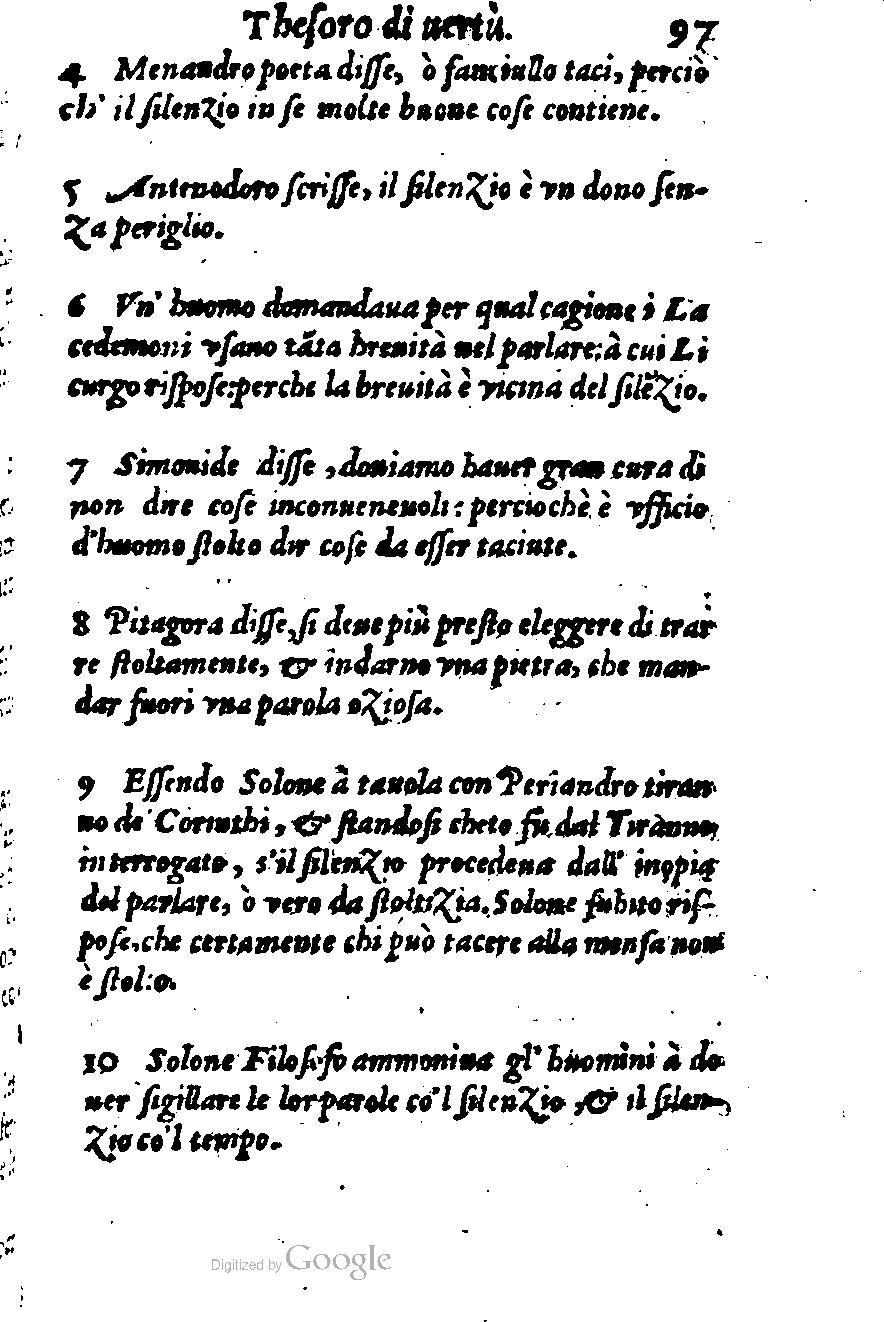 Theſoro di uertù. 97
4 Menandro poeta diſſe, ò fanciullo taci, perciò
ch' il ſilenzio in ſe molte buone coſe contiene.
5 Antenodoro ſcriſſe, il ſilenzio è vn dono ſen-
za periglio.
6 Vn' huomo domandaua per qual cagione i La
cedemoni vſano tāta breuità nel parlare; à cui Li
curgo riſpoſe: perche la breuità è vicina del ſilēzio.
7 Simonide diſſe, douiamo hauer gran cura di
non dire coſe inconueneuoli: perciochè è vfficio
d'huomo ſtolto dir coſe da eſſer taciute.
8 Pitagora diſſe, ſi deue più preſto eleggere di trar
re ſtoltamente, & indarno vna pietra, che man-
dar fuori vna parola ozioſa.
9 Eſſendo Solone à tauola con Periandro tiran
no de' Corinthi, & ſtandoſi cheto fu dal Tiranno,
interrogato, s'il ſilenzio procedeua dall' inopia
del parlare, ò vero da ſtoltizia. Solone ſubito riſ-
poſe, che certamente chi può tacere alla menſa non
è ſtolto.
10 Solone Filoſofo ammoniua gl' huomini à do
uer ſigillare le lor parole co'l ſilenzio, & il ſilen-
zio co'l tempo.
Digitized by Google